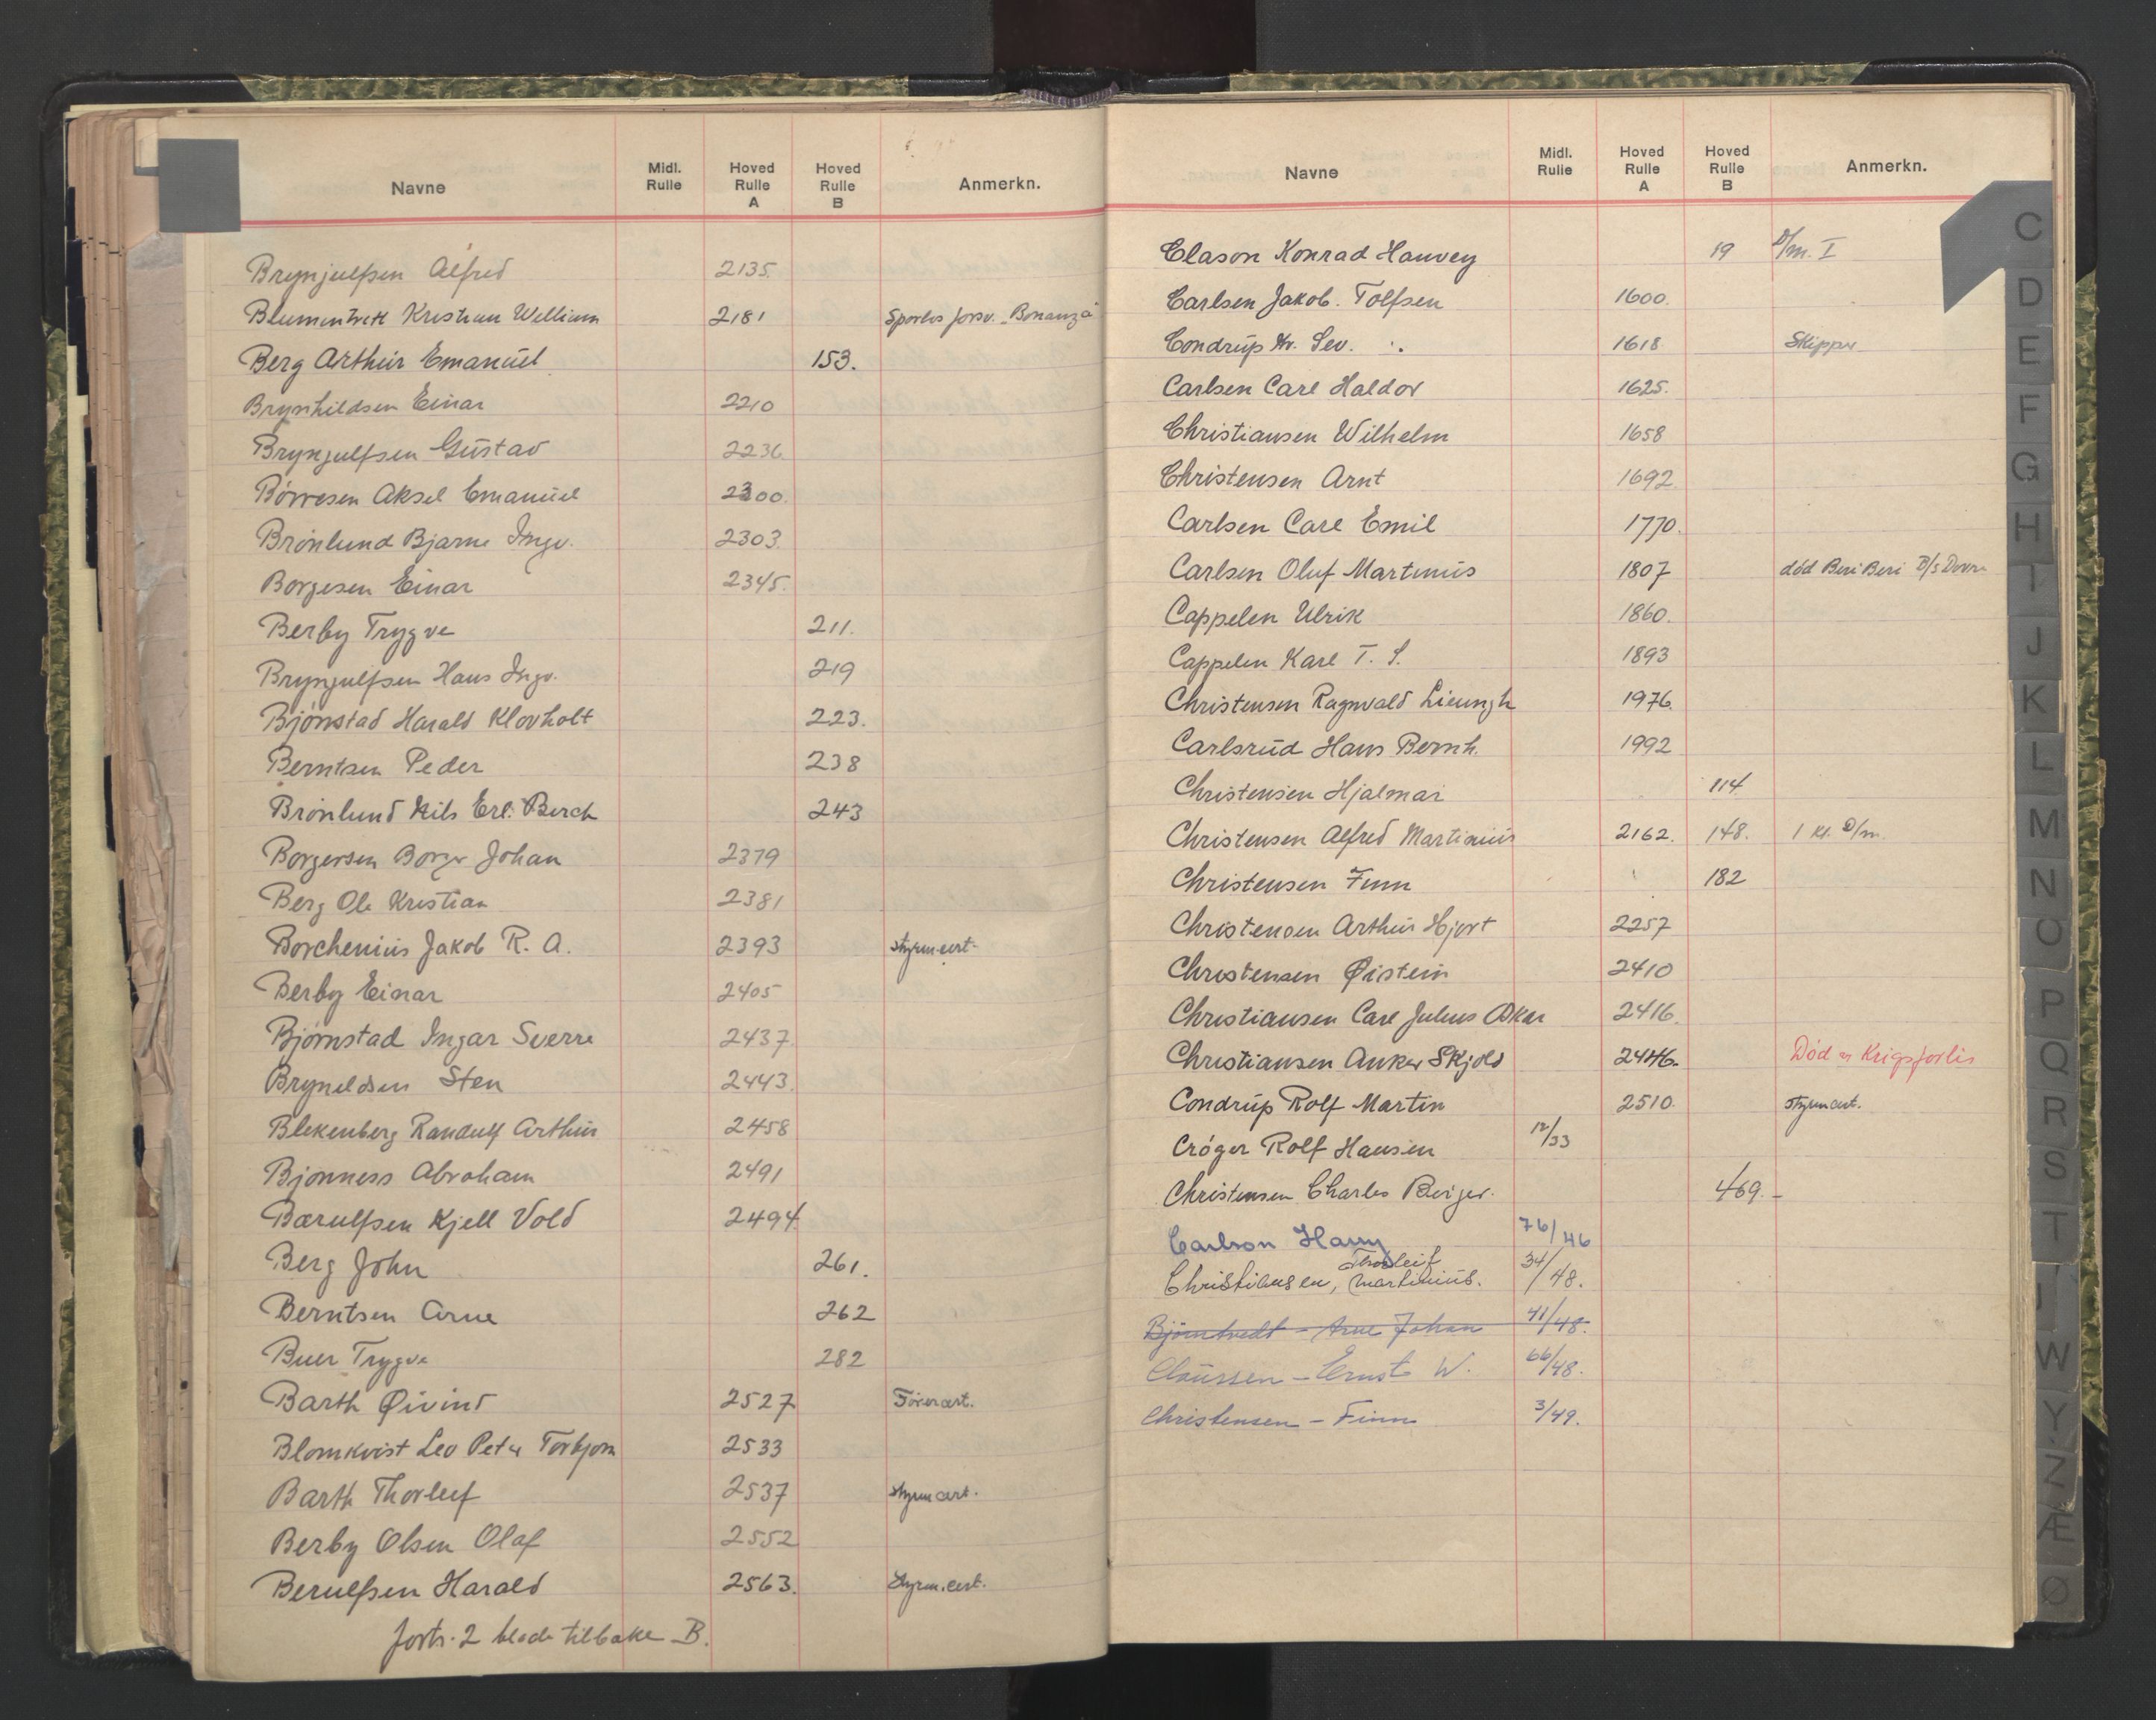 Navne Midl. Rulle Hoved Rulle A Hoved Rulle B Anmerkn.
Brynjulfsen Alfred 2135.
Blumentritt Kristian William 2181 Sporløs forsv. "Bonanza"
Berg Arthur Emanuel 153.
Brynhildsen Einar 2210
Brynjulfsen Gustav 2236
Börresen Aksel Emanuel 2300.
Brönlund Bjarne Ingv. 2303.
Borgesen Einar 2345.
Berby Trygve 211.
Brynjulfsen Hans Ingv. 219
Bjönstad Harald Klovholt 223.
Berntsen Peder 238
Brönlund Nils Erl. Berch 243
Borgersen Borger Johan 2379
Berg Ole Kristian 2381
Borchenius Jakob R. A. 2393 styrm.cert.
Berby Einar 2405
Bjørnstad Ingar Sverre 2437.
Bryneldsen Sten 2443.
Blekenberg Randulf Arthur 2458
Bjönness Abraham 2491
Bærulfsen Kjell Vold 2494
Berg John 261.
Berntsen Arne 262
Buer Trygve 282
Barth Øivind 2527 Förercert.
Blomkvist Leo Peter Torbjørn 2533
Barth Thorleif 2537 styrm cert.
Berby Olsen Olaf 2552
Berulfsen Harald 2563. Styrm.cert.
forts. 2 blade tilbake B.
Navne Midl. Rulle Hoved Rulle A Hoved Rulle B Anmerkn.
Clason Konrad Hanvey 19 D/m. I
Carlsen Jakob. Tolfsen 1600.
Condrup Kr. Sev. 1618 Skipper
Carlsen Carl Haldor 1625.
Christiansen Wilhelm 1658
Christensen Arnt 1692.
Carlsen Carl Emil 1770.
Carlsen Oluf Martinius 1807 död Beri Beri D/S Dovre
Cappelen Ulrik 1860.
Cappelen Karl T. S. 1893
Christensen Ragnvald Lieungh 1976.
Carlsrud Hans Bernh. 1992
Christensen Hjalmar 114
Christensen Alfred Martinius 2162. 148. 1 kl. D/m.
Christensen Finn 182
Christensen Arthur Hjort 2257
Christensen Øistein 2410
Christiansen Carl Julius Oskar 2416.
Christiansen Anker Skjold 2446. Död er Krigsforlis
Condrup Rolf Martin 2510. styrm cert.
Cröger Rolf Hansen 12/33
Christensen Charles Birger. 469.-
Carlson Harry 76/46
Thorleif
Christiansen, Martinius. 34/48.
Björntvedt - Arne Johan 41/48.
Claussen - Ernst W. 66/48.
Christensen - Finn 3/49.
C
D
E
F
G
H
I
J
K
L
M
N
O
P
Q
R
S
T
U
W
Y
Z
Æ
Ø